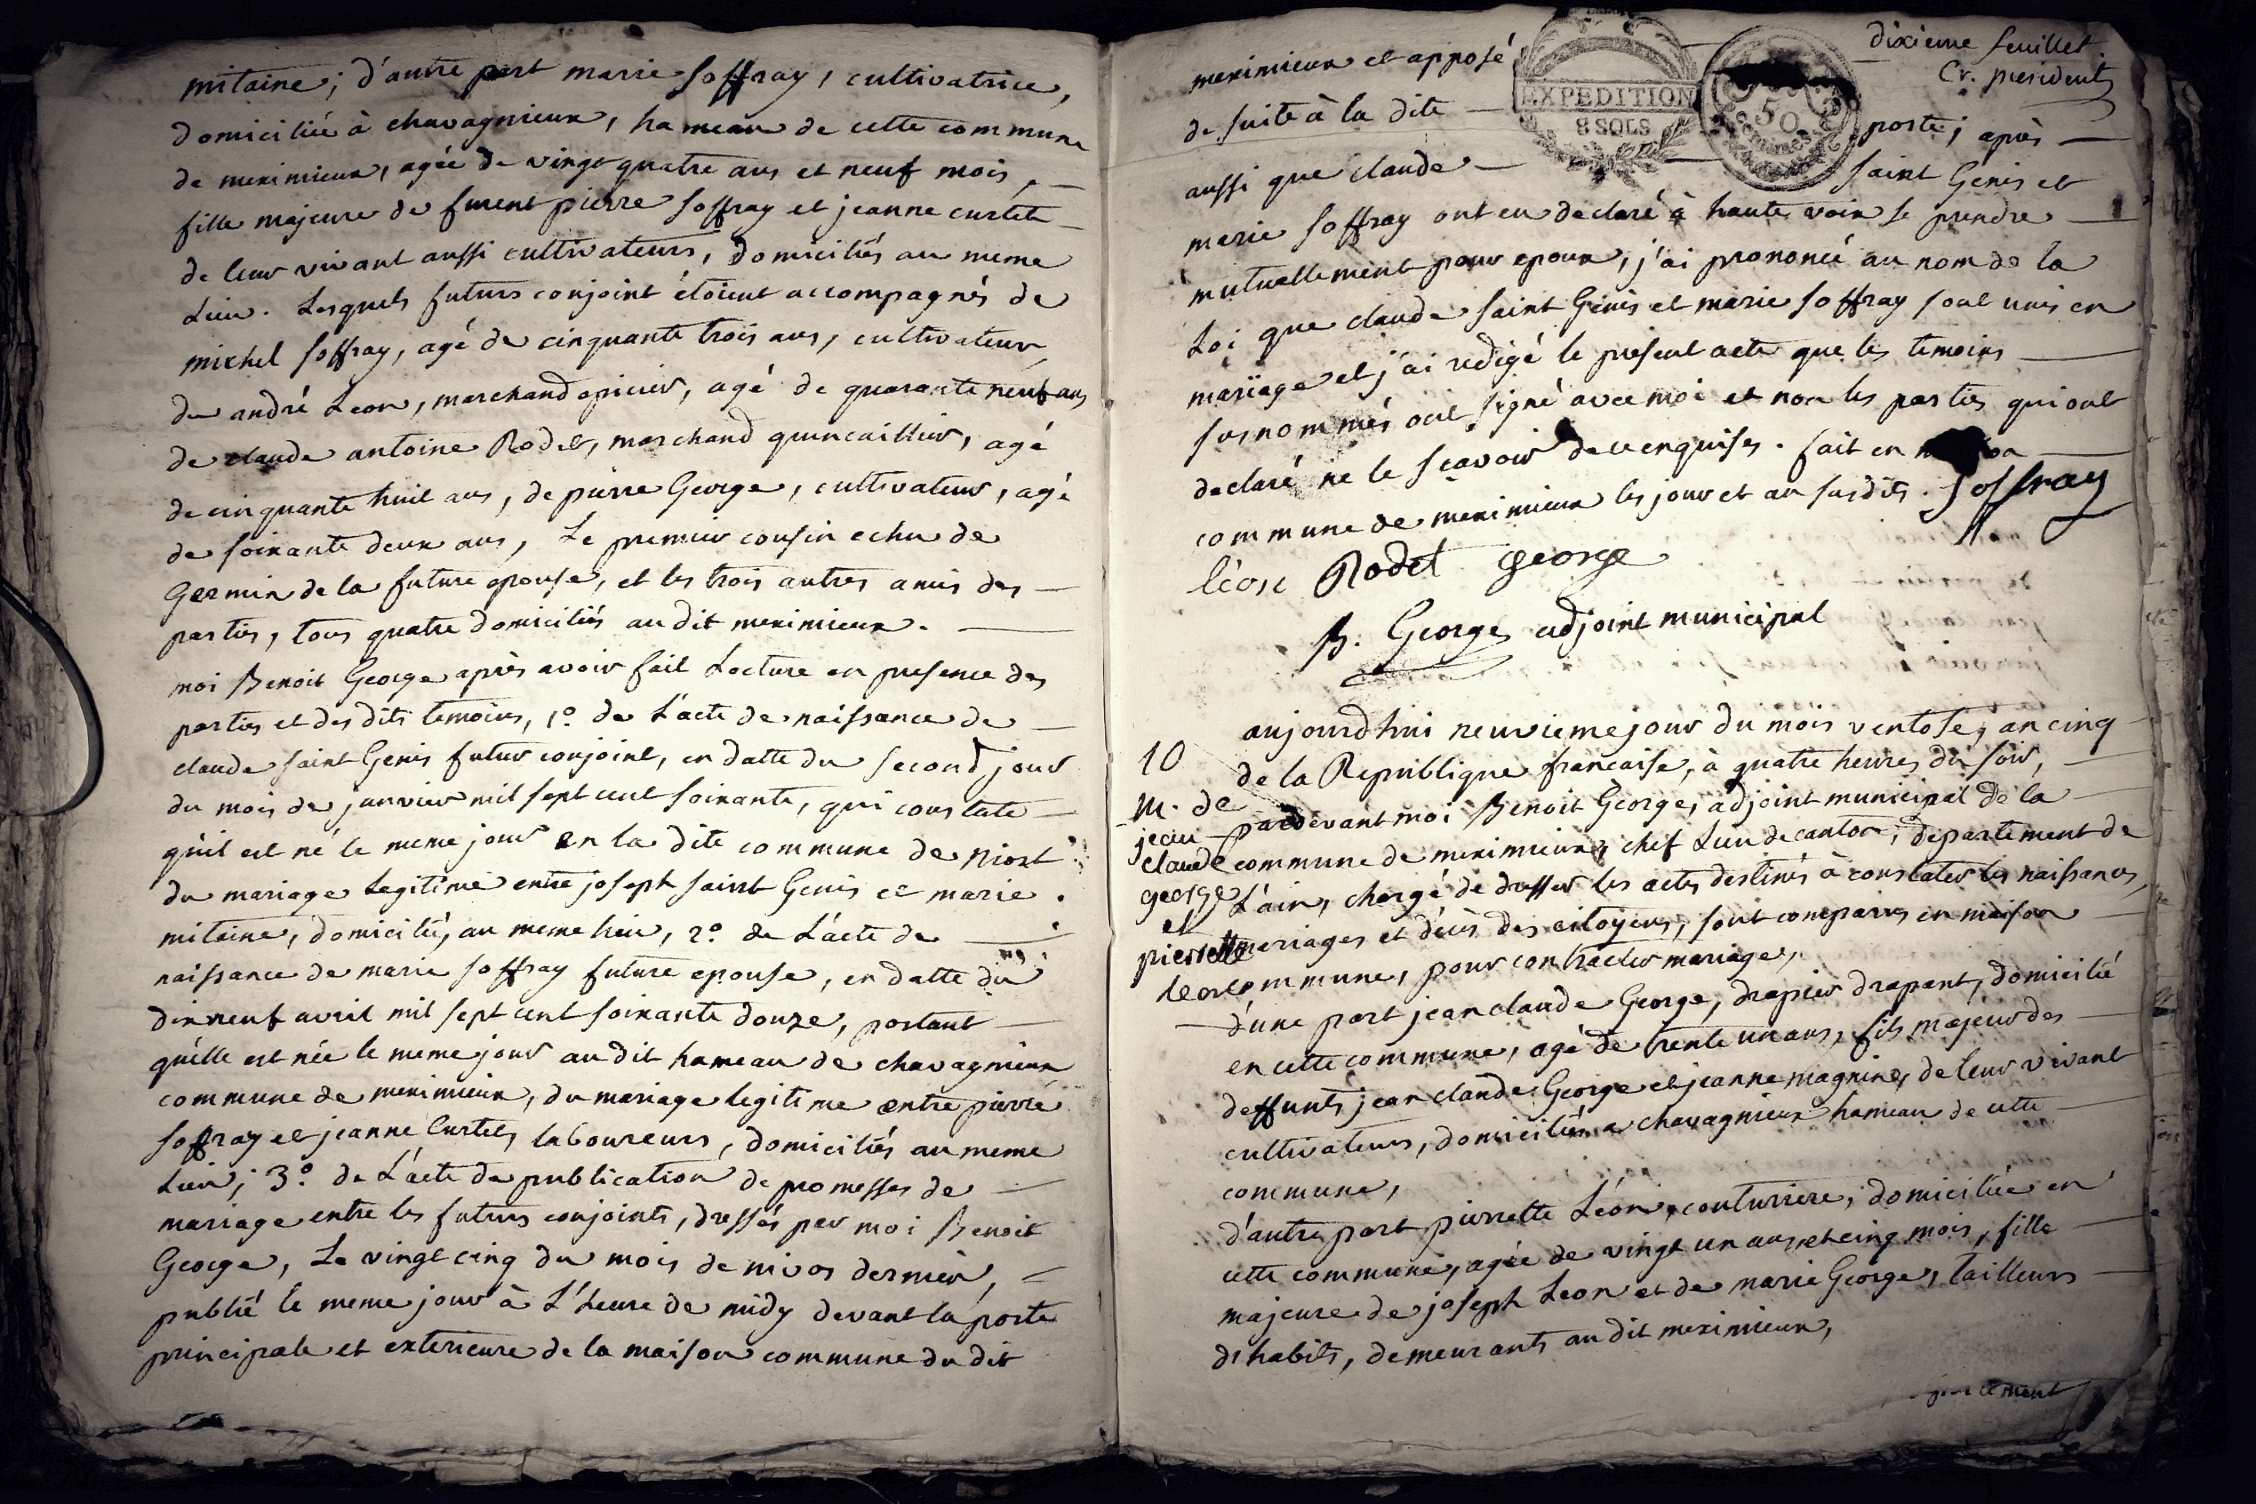 mitaine; d'autre part marie soffray, cultivatrice,
domiciliée à chavagnieux, hameau de cette commune
de meximieux, agée de vingt quatre ans et neuf mois,
fille majeure de furent pierre soffray et jeanne curtet
de leur vivant aussi cultivateurs, domiciliés au meme
Lieu. Lesquels futurs conjoint étoient accompagnés de
michel soffray, agé de cinquante trois ans, cultivateur,
de andré Leon, marchand epicier, agé de quarante neuf ans
de claude antoine Rodet, marchand quincaillier, agé
de cinquante huit ans, de pierre George, cultivateur, agé
de soixante deux ans, Le premier cousin echu de
Germin de la future epouse, et les trois autres amis des
parties, tous quatre domiciliés au dit meximieux.
moi Benoit George après avoir fait Lecture en presence des
parties et des dits temoins, 1o. de L'acte de naissance de
claude saint Genis futur conjoint, en datte du second jour
du mois de janvier mil sept cent soixante, qui constate
qu'il est né le meme jour en la dite commune de niost
du mariage legitime entre joseph saint Genis et marie
mitaine, domicilié, au meme lieu, 2o. de L'acte de
naissance de marie soffray future epouse, en datte du
dixneuf avril mil sept cent soixante douze, portant
qu'elle est née le meme jour au dit hameau de chavagnieux
commune de meximieux, du mariage legitime entre pierre
soffray et jeanne Curtet, laboureurs, domiciliés au meme
Lieu; 3o. de L'acte de publication de promesses de
mariage entre les futurs conjoints, dressés par moi Benoit
George, Le vingt cinq du mois de nivos dernier,
publié le meme jour à L'heure de midy devant la porte
principale et exterieure de la maison commune du dit
dixieme feuillet.
Cr. president
EXPEDITION
8 SOLS
50
meximieux et apposé
de suite à la dite porte; après
aussi que claude saint Genis et
marie soffray ont eu declaré à haute voix se prendre
mutuellement pour epoux, j'ai prononcé au nom de la
Loi que claude saint Genis et marie soffray sont unis en
mariage et j'ai redigé le present acte que les temoins
susnommés ont signé avec moi et non les parties qui ont
declaré ne le sçavoir de ce enquises. fait en
commune de meximieux les jour et an susdits. soffray
léon Rodet george
B. George, adjoint municipal
10
m. de
jean
claude
george
et
pierrette
leon
aujourd'hui neuvieme jour du mois ventose, an cinq
de la Republique francaise, à quatre heures du soir,
pardevant moi Benoit George, adjoint municipal de la
commune de meximieux, chef Lieu de canton, departement de
L'ain, chargé de dresser les actes destinés à constater les naissances,
mariages et décès des citoyens, sont comparus en maison
commune, pour contracter mariage,
d'une part jean claude George, drapier drapant, domicilié
en cette commune, agé de trente un ans, fils majeur des
deffunts jean claude George et jeanne magnine, de leur vivant
cultivateurs, domiciliés a chavagnieux hameau de cette
commune,
d'autre part pierrette Léon, couturiere, domiciliée en
cette commune, agée de vingt un ans et cinq mois, fille
majeure de joseph Leon et de marie George, tailleurs
d'habits, demeurants au dit meximieux,